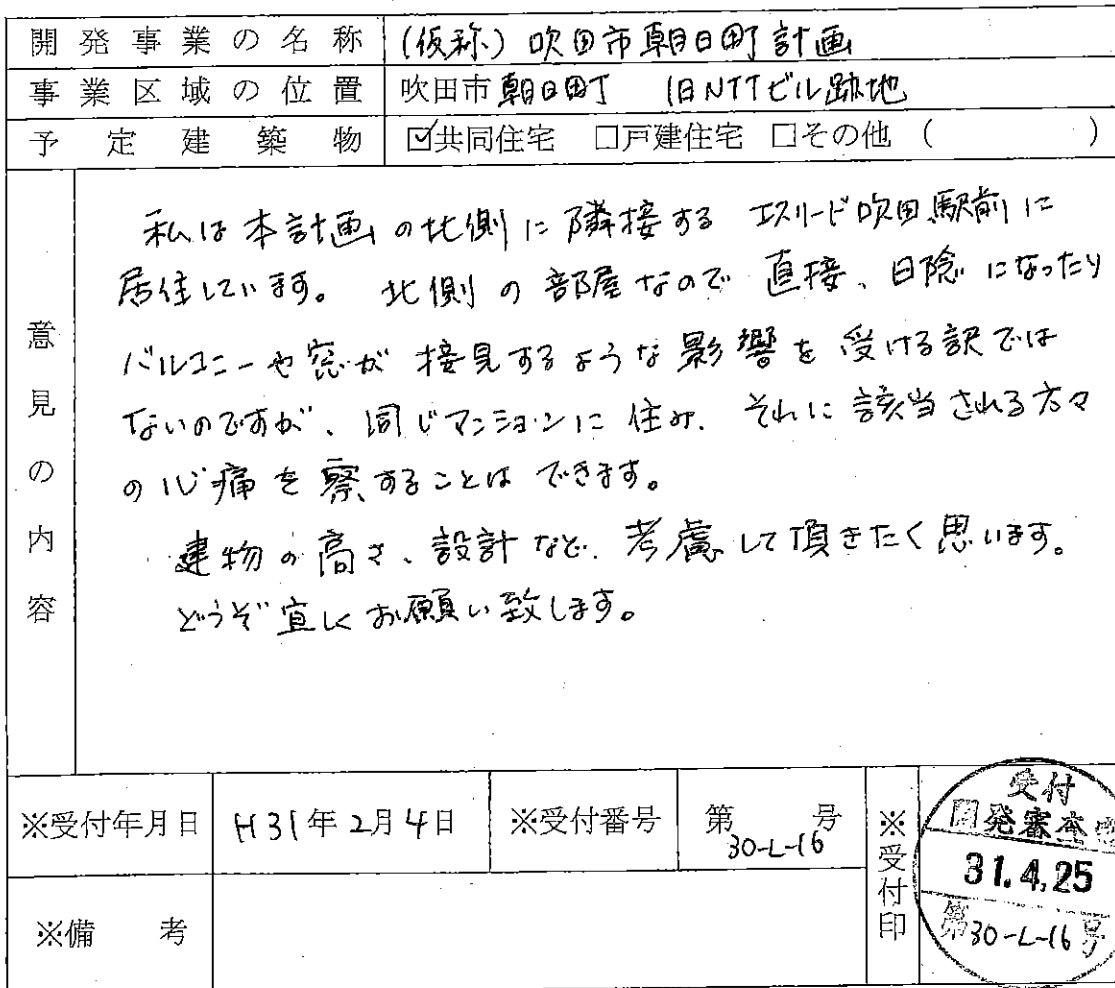 開発事業の名称 (仮称) 吹田市朝日町計画
事業区域の位置 吹田市朝日町 旧NTTビル跡地
予定建築物 ☑共同住宅 □戸建住宅 □その他 ( )
意見の内容
私は本計画の北側に隣接する エスリード吹田駅前に
居住しています。 北側の部屋なので 直接、日陰になったり
バルコニーや窓が 接見するような影響を受ける訳では
ないのですが、同じマンションに住み、それに該当される方々
の心痛を察することはできます。
建物の高さ、設計など、考慮して頂きたく思います。
どうぞ宜しくお願い致します。
※受付年月日 H31年2月4日 ※受付番号 第 号
30-L-16
※受付印
受付
開発審査
31.4.25
第30-L-16号
※備考